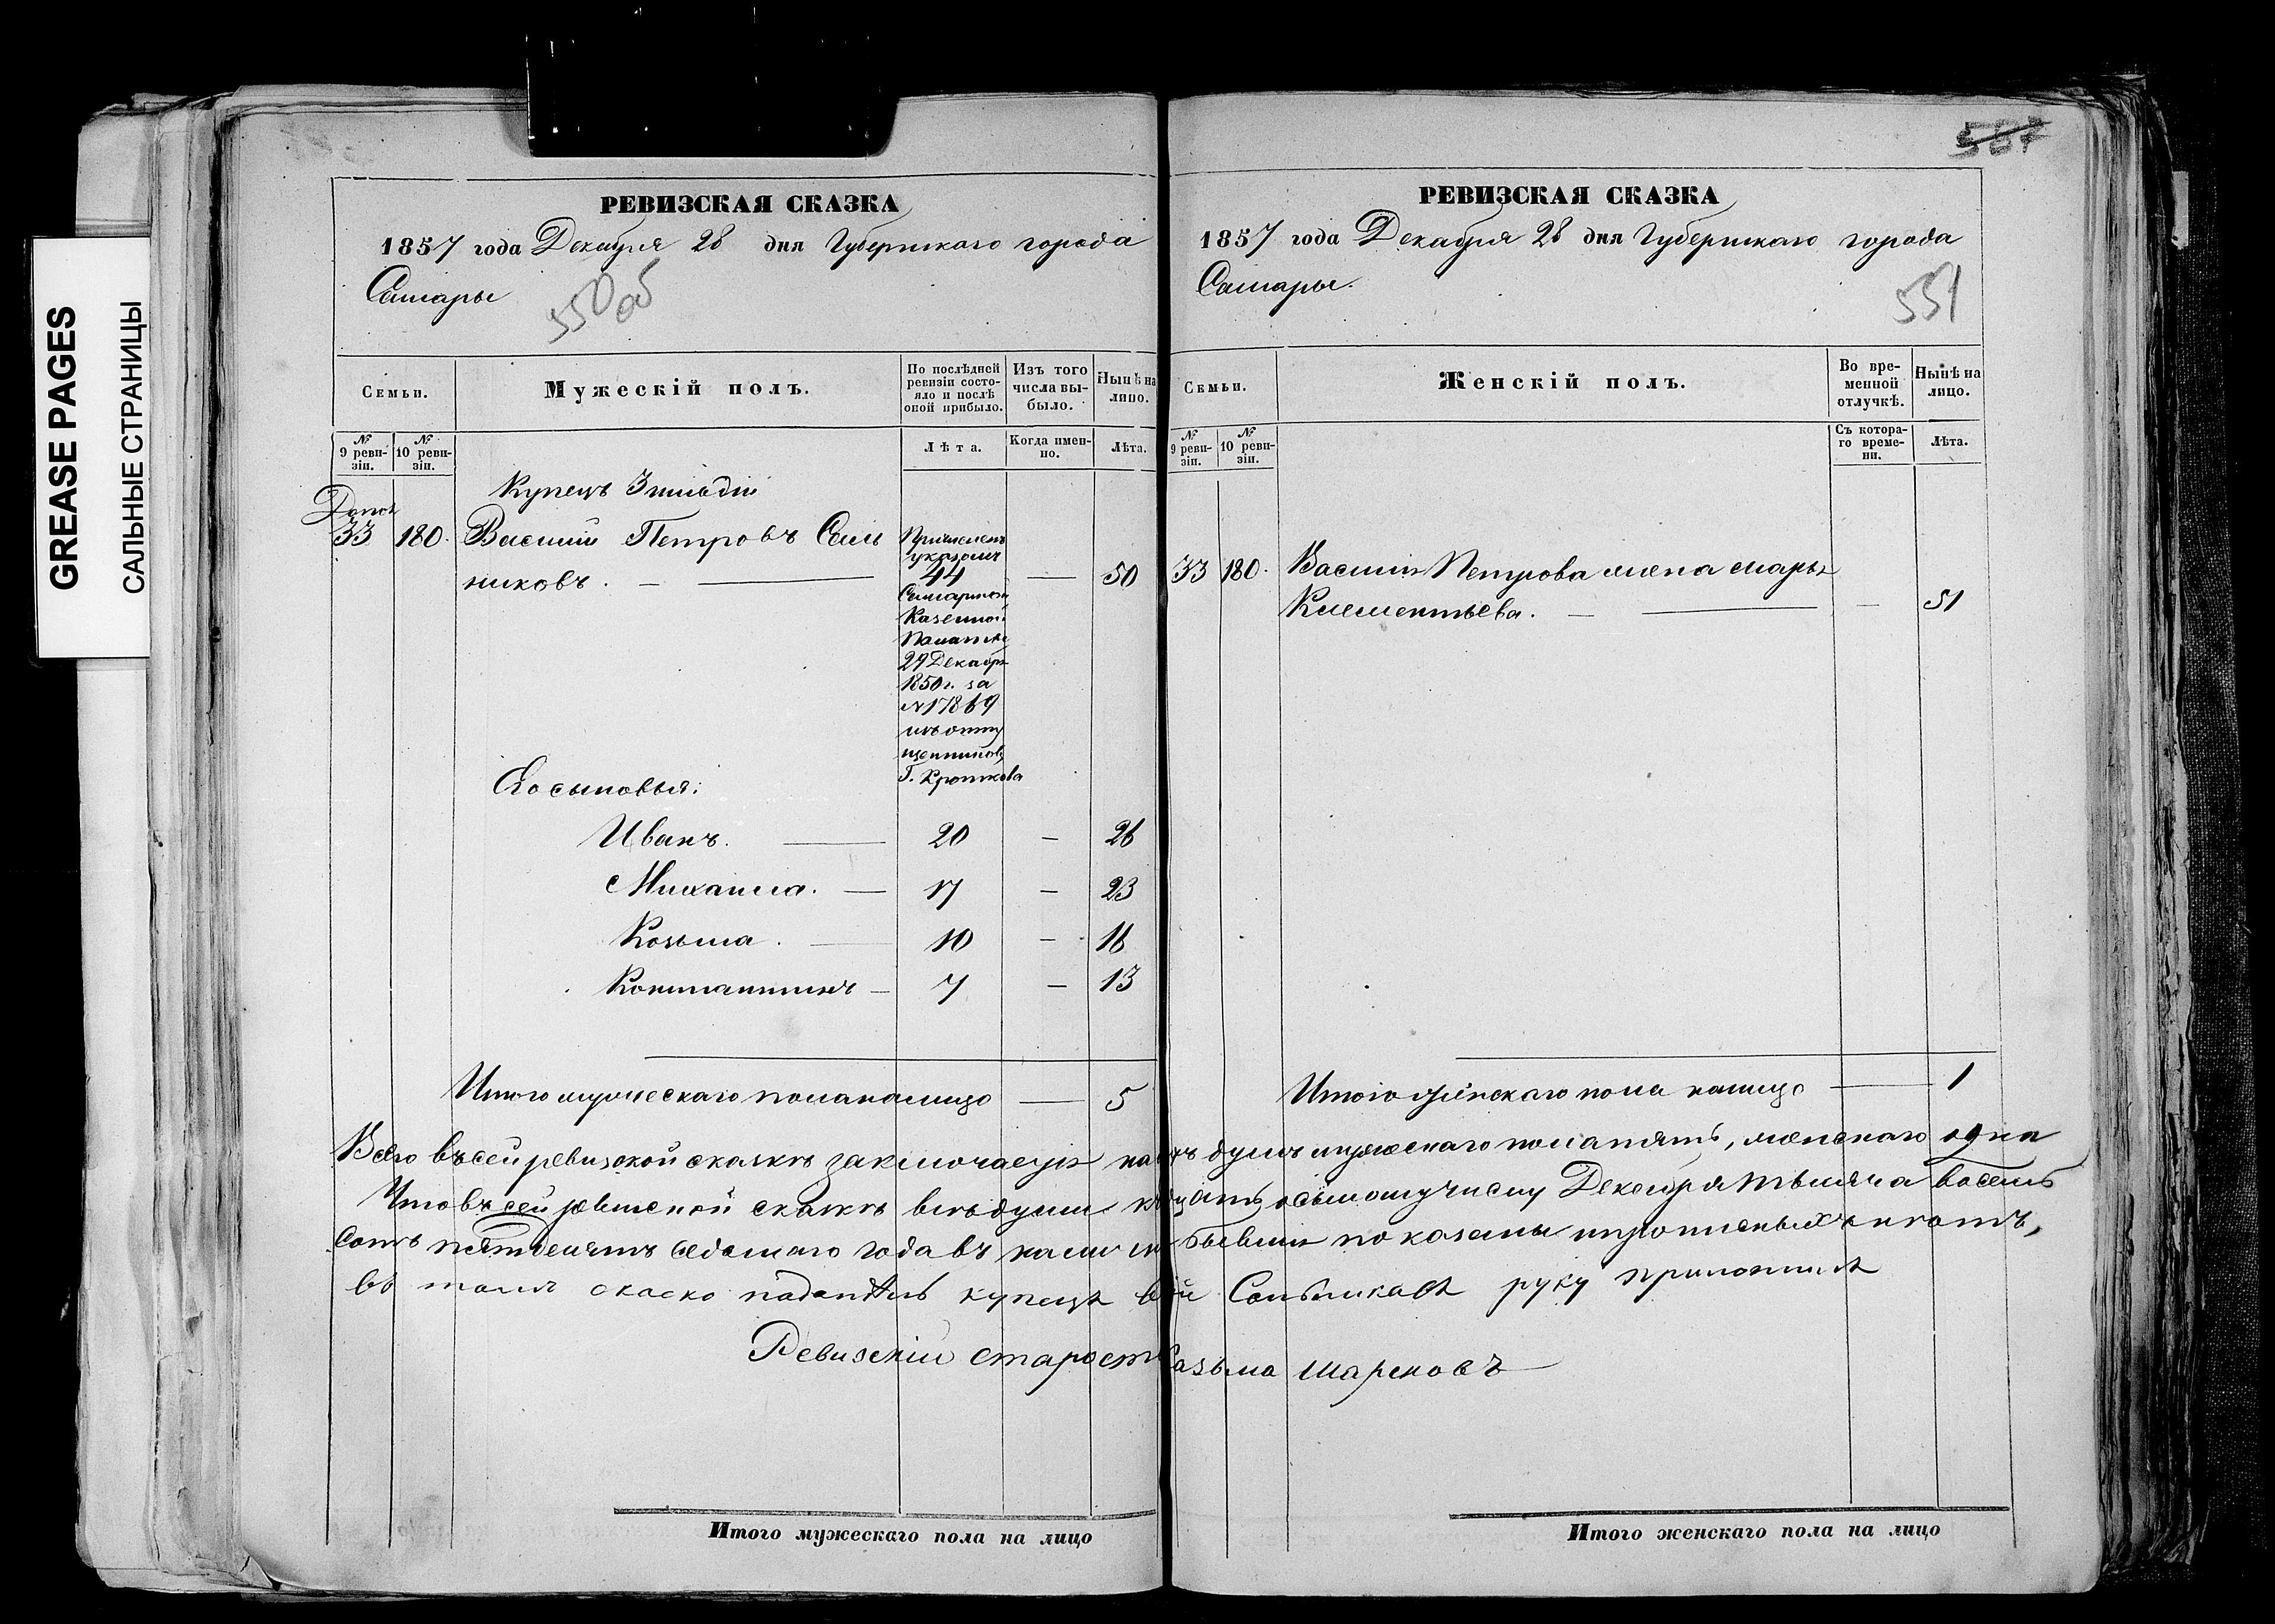 GREASE PAGES
САЛЬНЫЕ СТРАНИЦЫ
РЕВИЗСКАЯ СКАЗКА
1857 года Декабря 28 дня Губернскаго города
Самары
550 об
Семьи.
Мужескій полъ.
По послѣдней ревизіи состояло и послѣ оной прибыло.
Изъ того числа выбыло.
Нынѣ на лицо.
№ 9 ревизіи.
№ 10 ревизіи.
Лѣта.
Когда именно.
Лѣта.
Купецъ 3 гильдіи
Допол
33 180. Василій Петровъ Соль
никовъ. — 44 — 50
Причисленъ
указомъ
Самарской
Казенной
Палаты
29 Декабря
1850 г. за
№ 17869
изъ отпу
щенниковъ
Г. Кроткова
Его сыновья:
Иванъ. — 20 — 26
Михаила. — 17 — 23
Козьма. — 10 — 16
Константинъ — 7 — 13
Итого мужескаго пола налицо — 5
587
РЕВИЗСКАЯ СКАЗКА
1857 года Декабря 28 дня Губернскаго города
Самары.
551
Семьи.
Женскій полъ.
Во временной отлучкѣ.
Нынѣ на лицо.
№ 9 ревизіи.
№ 10 ревизіи.
Съ котораго времени.
Лѣта.
33 180. Василія Петрова жена Марья
Клементьева. — — 51
Итого женскаго пола налицо — 1
Всего въ сей ревизской сказкѣ заключается душъ мужескаго пола пять, женскаго одна
Что въ сей ревизской сказкѣ всѣ души осьмому числу Декабря тысяча восемь
сотъ пятьдесятъ седьмаго года въ бывши показаны и нѣтъ,
въ томъ купецъ руку приложилъ
Ревизскій старост Казьма
Итого мужескаго пола на лицо
Итого женскаго пола на лицо